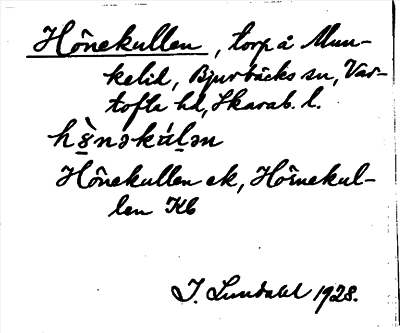 Hönekullen, torp å Mun-
kelid, Bjurbäcks sn, Var-
tofta hd, Skarab. l.
Hönekullen ek, Hörnekul-
len Kb
J. Lundahl 1928.